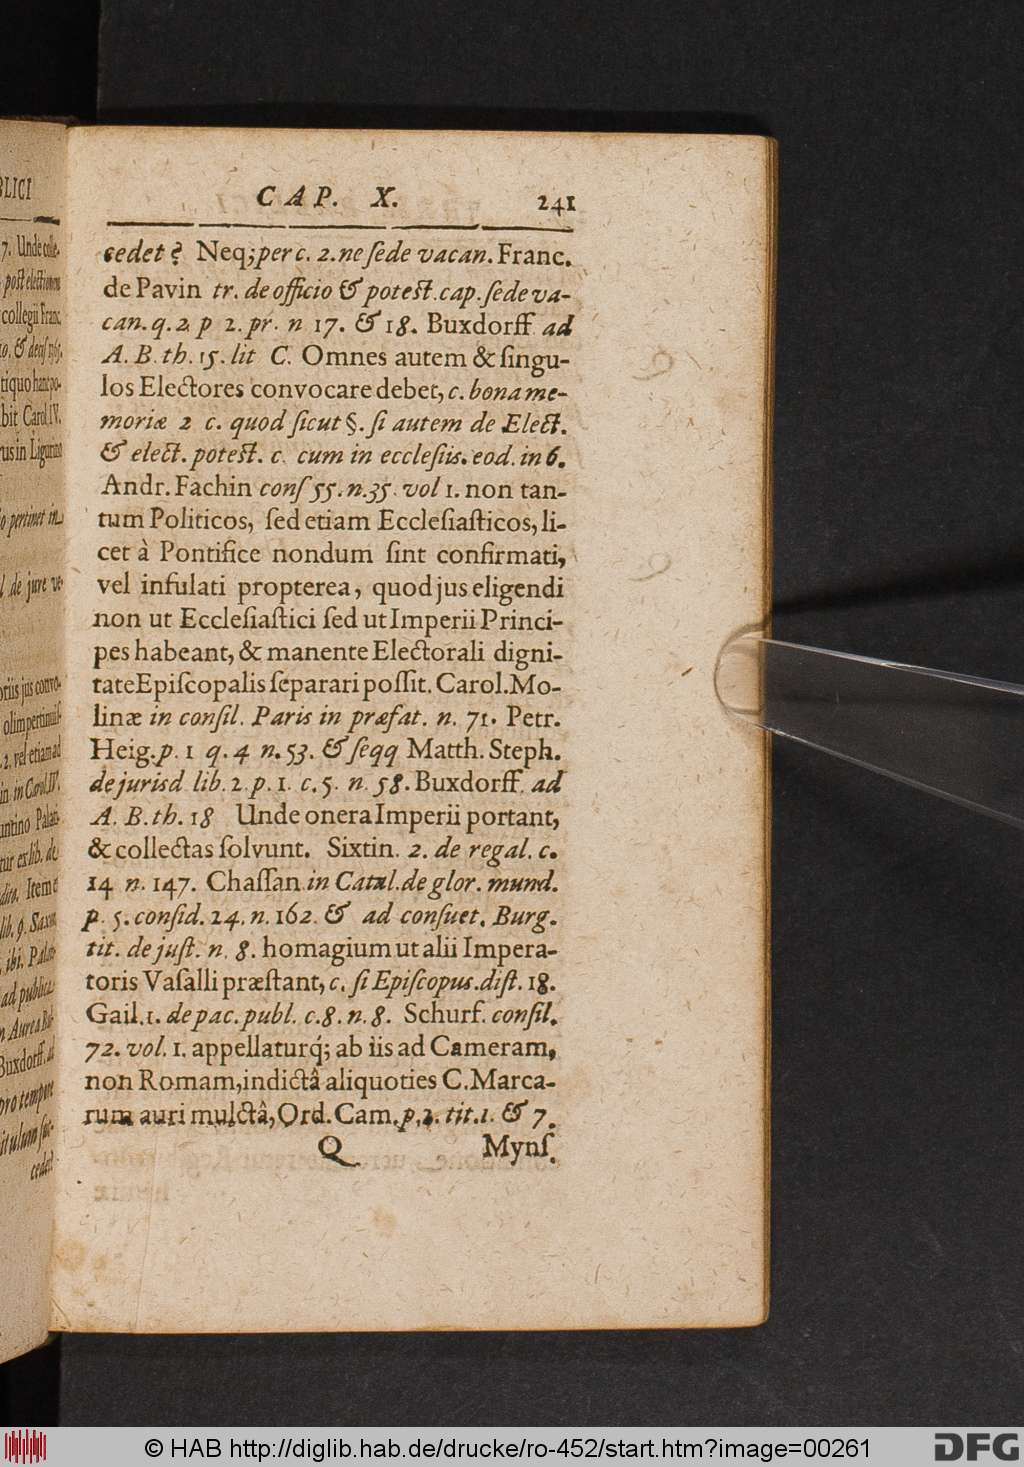 CAP. X. 241
cedet? Neq; per c. 2. ne ſede vacan. Franc.
de Pavin tr. de officio & poteſt. cap. ſede va-
can. q. 2. p 2. pr. n 17. & 18. Buxdorff ad
A. B. th. 15. lit C. Omnes autem & ſingu-
los Electores convocare debet, c. bona me-
moriæ 2 c. quod ſicut §. ſi autem de Elect.
& elect. poteſt. c. cum in eccleſiis. eod. in 6.
Andr. Fachin conſ 55. n. 35. vol 1. non tan-
tum Politicos, ſed etiam Eccleſiaſticos, li-
cet à Pontifice nondum ſint confirmati,
vel infulati propterea, quod jus eligendi
non ut Eccleſiaſtici ſed ut Imperii Princi-
pes habeant, & manente Electorali digni-
tate Epiſcopalis ſeparari poſſit. Carol. Mo-
linæ in conſil. Paris in præfat. n. 71. Petr.
Heig. p. 1 q. 4 n. 53. & ſeqq Matth. Steph.
de jurisd lib. 2. p. 1. c. 5. n. 58. Buxdorff. ad
A. B. th. 18 Unde onera Imperii portant,
& collectas ſolvunt. Sixtin. 2. de regal. c.
14 n. 147. Chaſſan in Catal. de glor. mund.
p. 5. conſid. 24. n. 162. & ad conſuet. Burg.
tit. de juſt. n. 8. homagium ut alii Impera-
toris Vaſalli præſtant, c. ſi Epiſcopus. diſt. 18.
Gail. 1. de pac. publ. c. 8. n. 8. Schurf. conſil.
72. vol. 1. appellaturq́; ab iis ad Cameram,
non Romam, indictâ aliquoties C. Marca-
rum auri mulctâ, Ord. Cam. p. 2. tit. 1. & 7.
Q Mynſ.
© HAB http://diglib.hab.de/drucke/ro-452/start.htm?image=00261
DFG